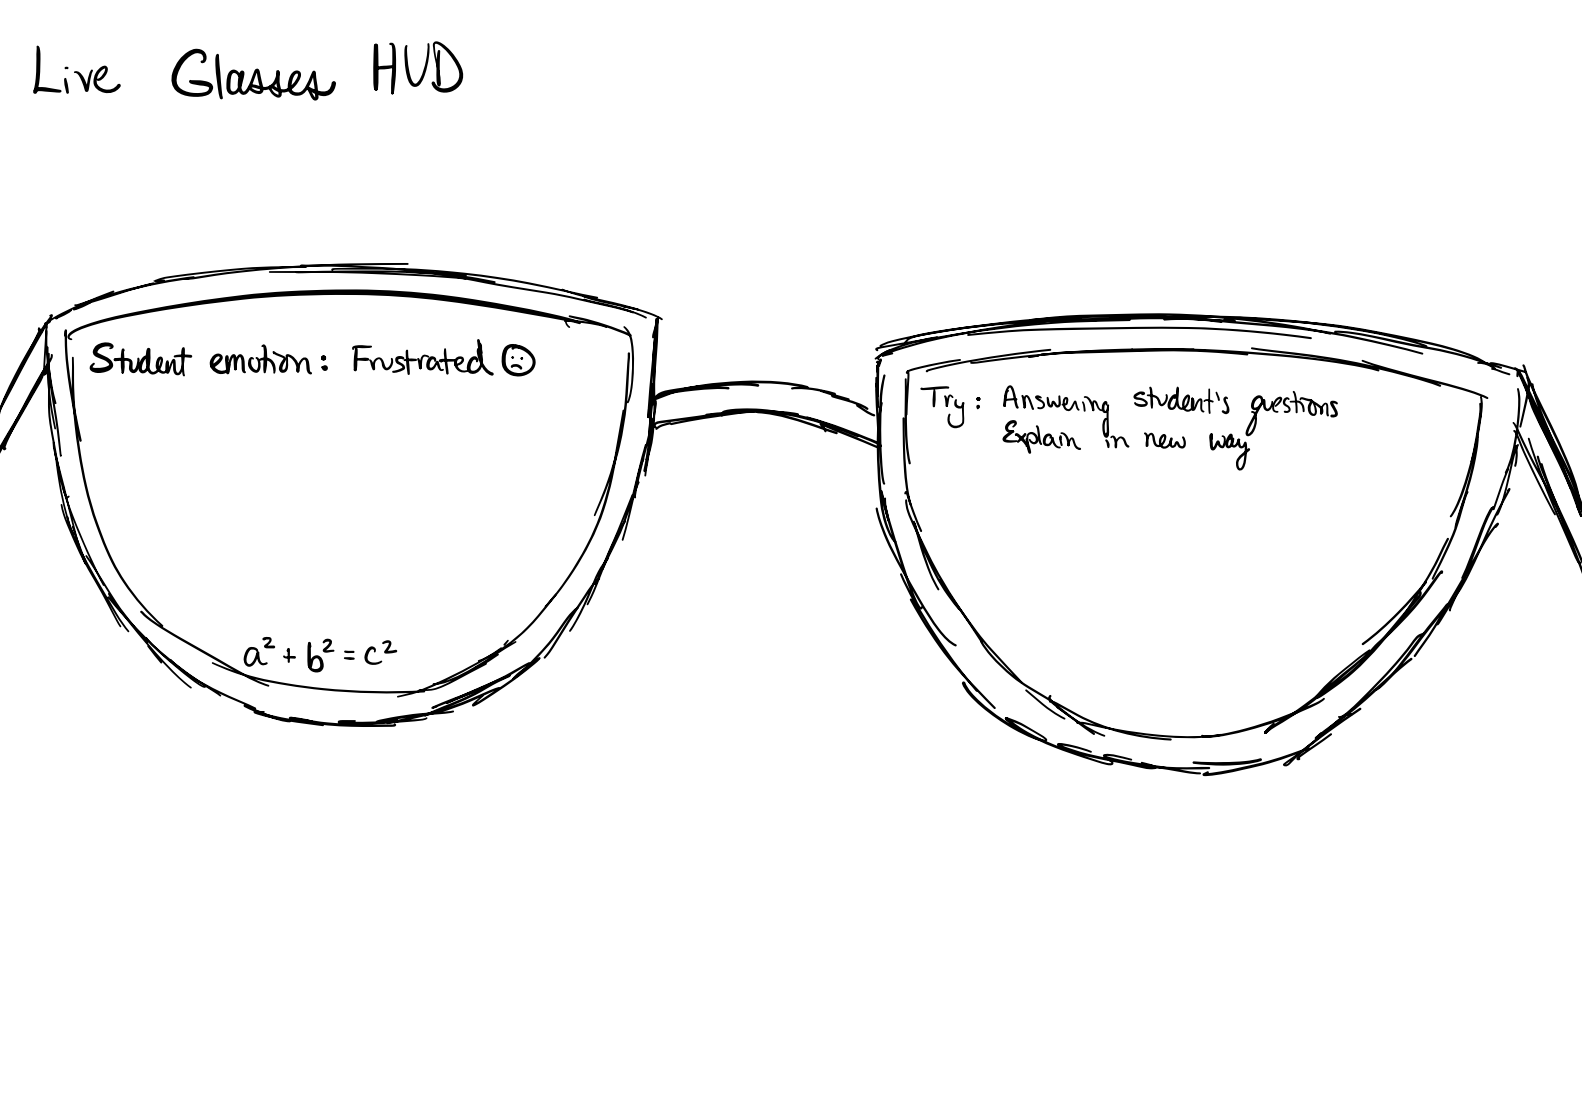 Live Glasses HUD
Student emotion: Frustrated ☹
a² + b² = c²
Try: Answering student's questions
Explain in new way